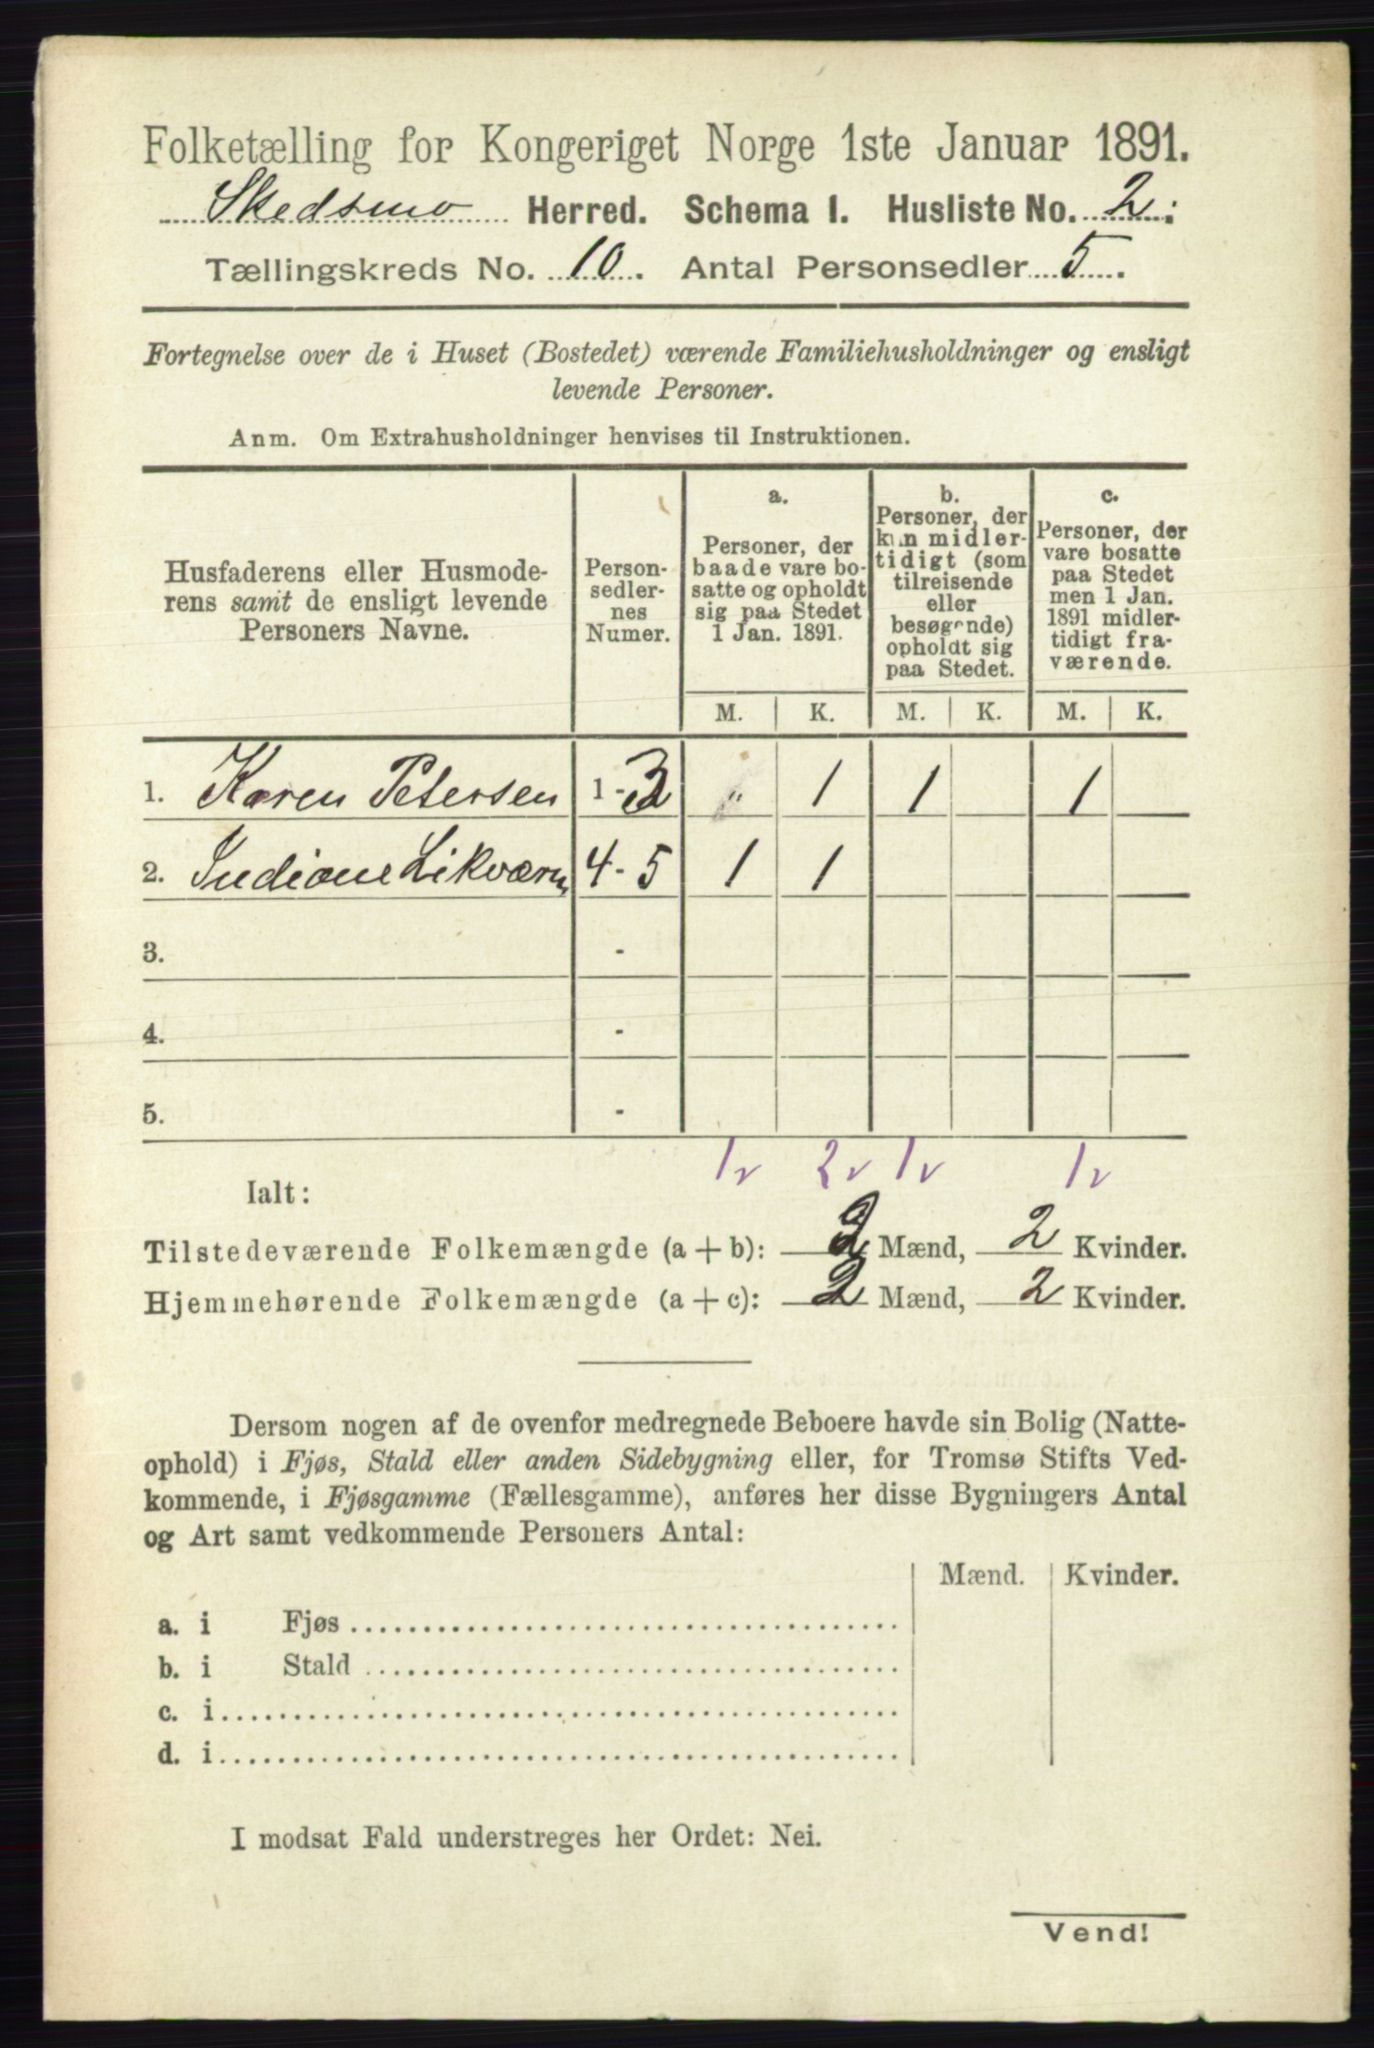 Folketælling for Kongeriget Norge 1ste Januar 1891.
Skedsmo Herred. Schema I. Husliste No. 2.
Tællingskreds No. 10. Antal Personsedler 5.
Fortegnelse over de i Huset (Bostedet) værende Familiehusholdninger og ensligt
levende Personer.
Anm. Om Extrahusholdninger henvises til Instruktionen.
Husfaderens eller Husmode-
rens samt de ensligt levende
Personers Navne.
Person-
sedler-
nes
Numer.
a.
Personer, der
baade vare bo-
satte og opholdt
sig paa Stedet
1 Jan. 1891.
b.
Personer, der
kun midler-
tidigt (som
tilreisende
eller
besøgende)
opholdt sig
paa Stedet.
c.
Personer, der
vare bosatte
paa Stedet
men 1 Jan.
1891 midler-
tidigt fra-
værende.
M. K. M. K. M. K.
1. Karen Petersen 1-3 1 1 1
2. Indiane Likværn 4-5 1 1
3. -
4. -
5. -
1 2 1 1
Ialt:
Tilstedeværende Folkemængde (a + b): 2 Mænd, 2 Kvinder.
Hjemmehørende Folkemængde (a + c): 2 Mænd, 2 Kvinder.
Dersom nogen af de ovenfor medregnede Beboere havde sin Bolig (Natte-
ophold) i Fjøs, Stald eller anden Sidebygning eller, for Tromsø Stifts Ved-
kommende, i Fjøsgamme (Fællesgamme), anføres her disse Bygningers Antal
og Art samt vedkommende Personers Antal:
Mænd. Kvinder.
a. i Fjøs
b. i Stald
c. i
d. i
I modsat Fald understreges her Ordet: Nei.
Vend!